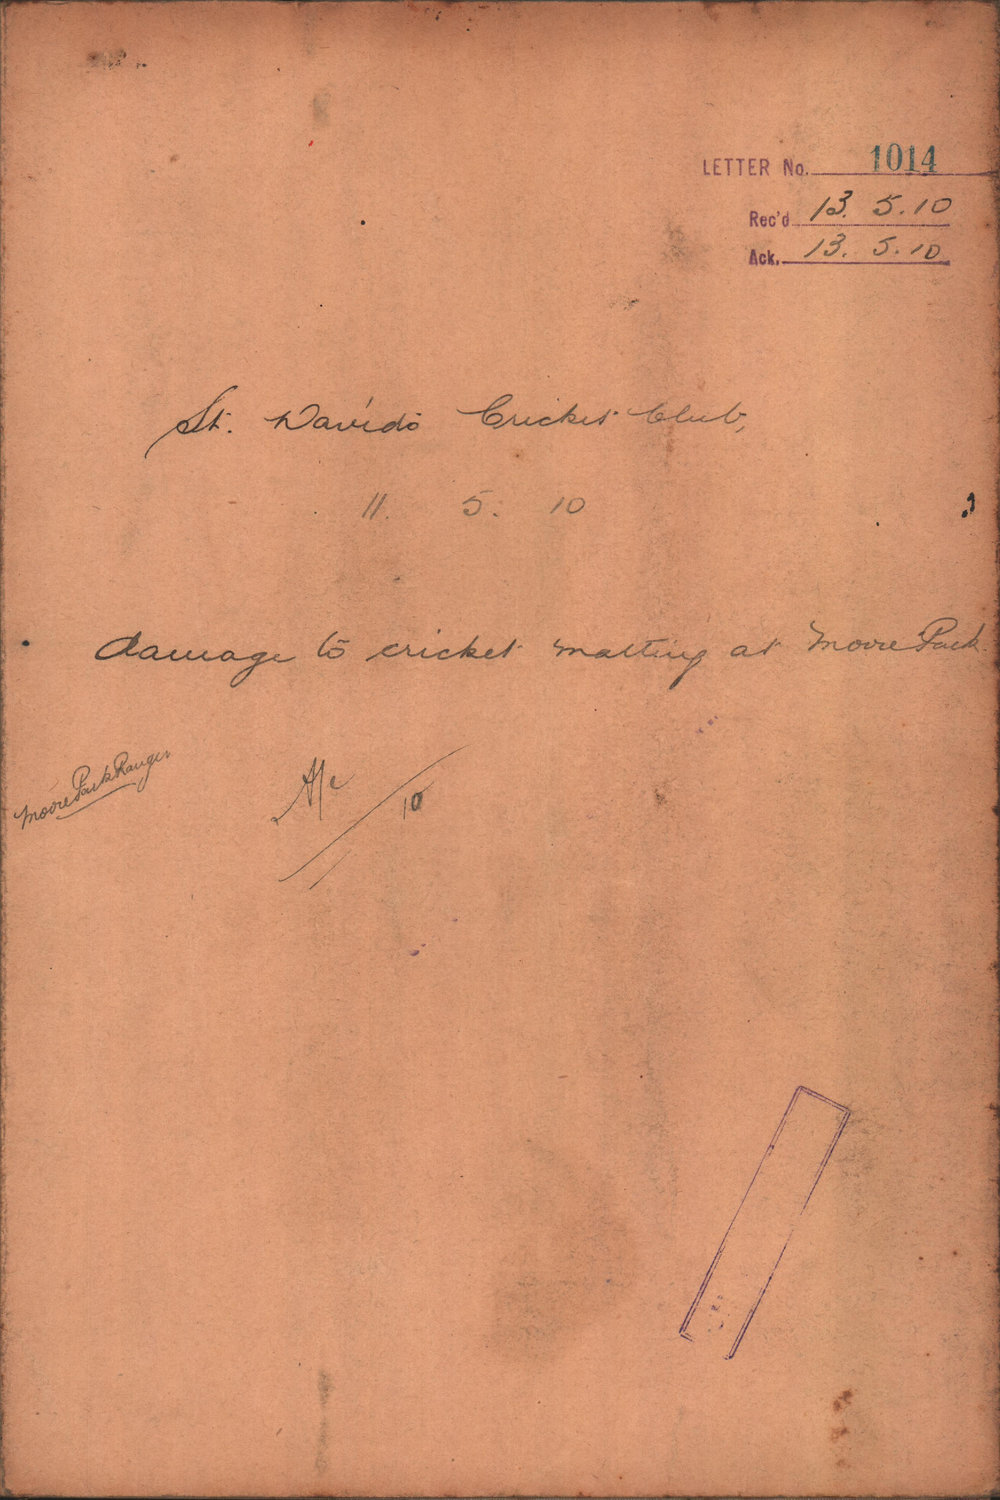 LETTER No. 1014
Rec'd 13. 5.10
Ack. 13. 5.10
St. David's Cricket Club,
11. 5. 10
damage to cricket matting at Moore Park.
Moore Park Ranger
10